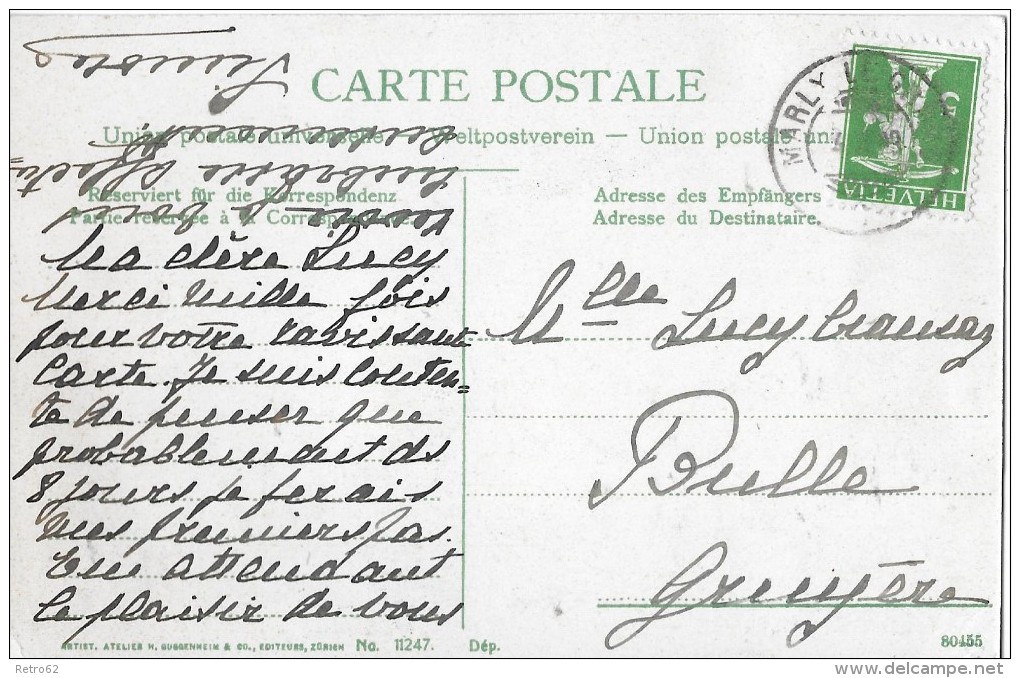 CARTE POSTALE
Union postale universelle — Weltpostverein — Union postale uni
Reserviert für die Korrespondenz
Partie réservée à la Correspondance.
Adresse des Empfängers
Adresse du Destinataire.
MARLY LE
HELVETIA
5
Ma chère Lucy
Merci mille fois
pour votre ravissante
carte. Je suis conten=
te de penser que
probablement ds
8 jours je ferais
mes premiers pas.
En attendant
le plaisir de vous
affectu=
Mlle Lucy
Bulle
Gruyère
ARTIST. ATELIER H. GUGGENHEIM & CO., EDITEURS, ZÜRICH No. 11247. Dép.
80455
Retro62
delcampe.net